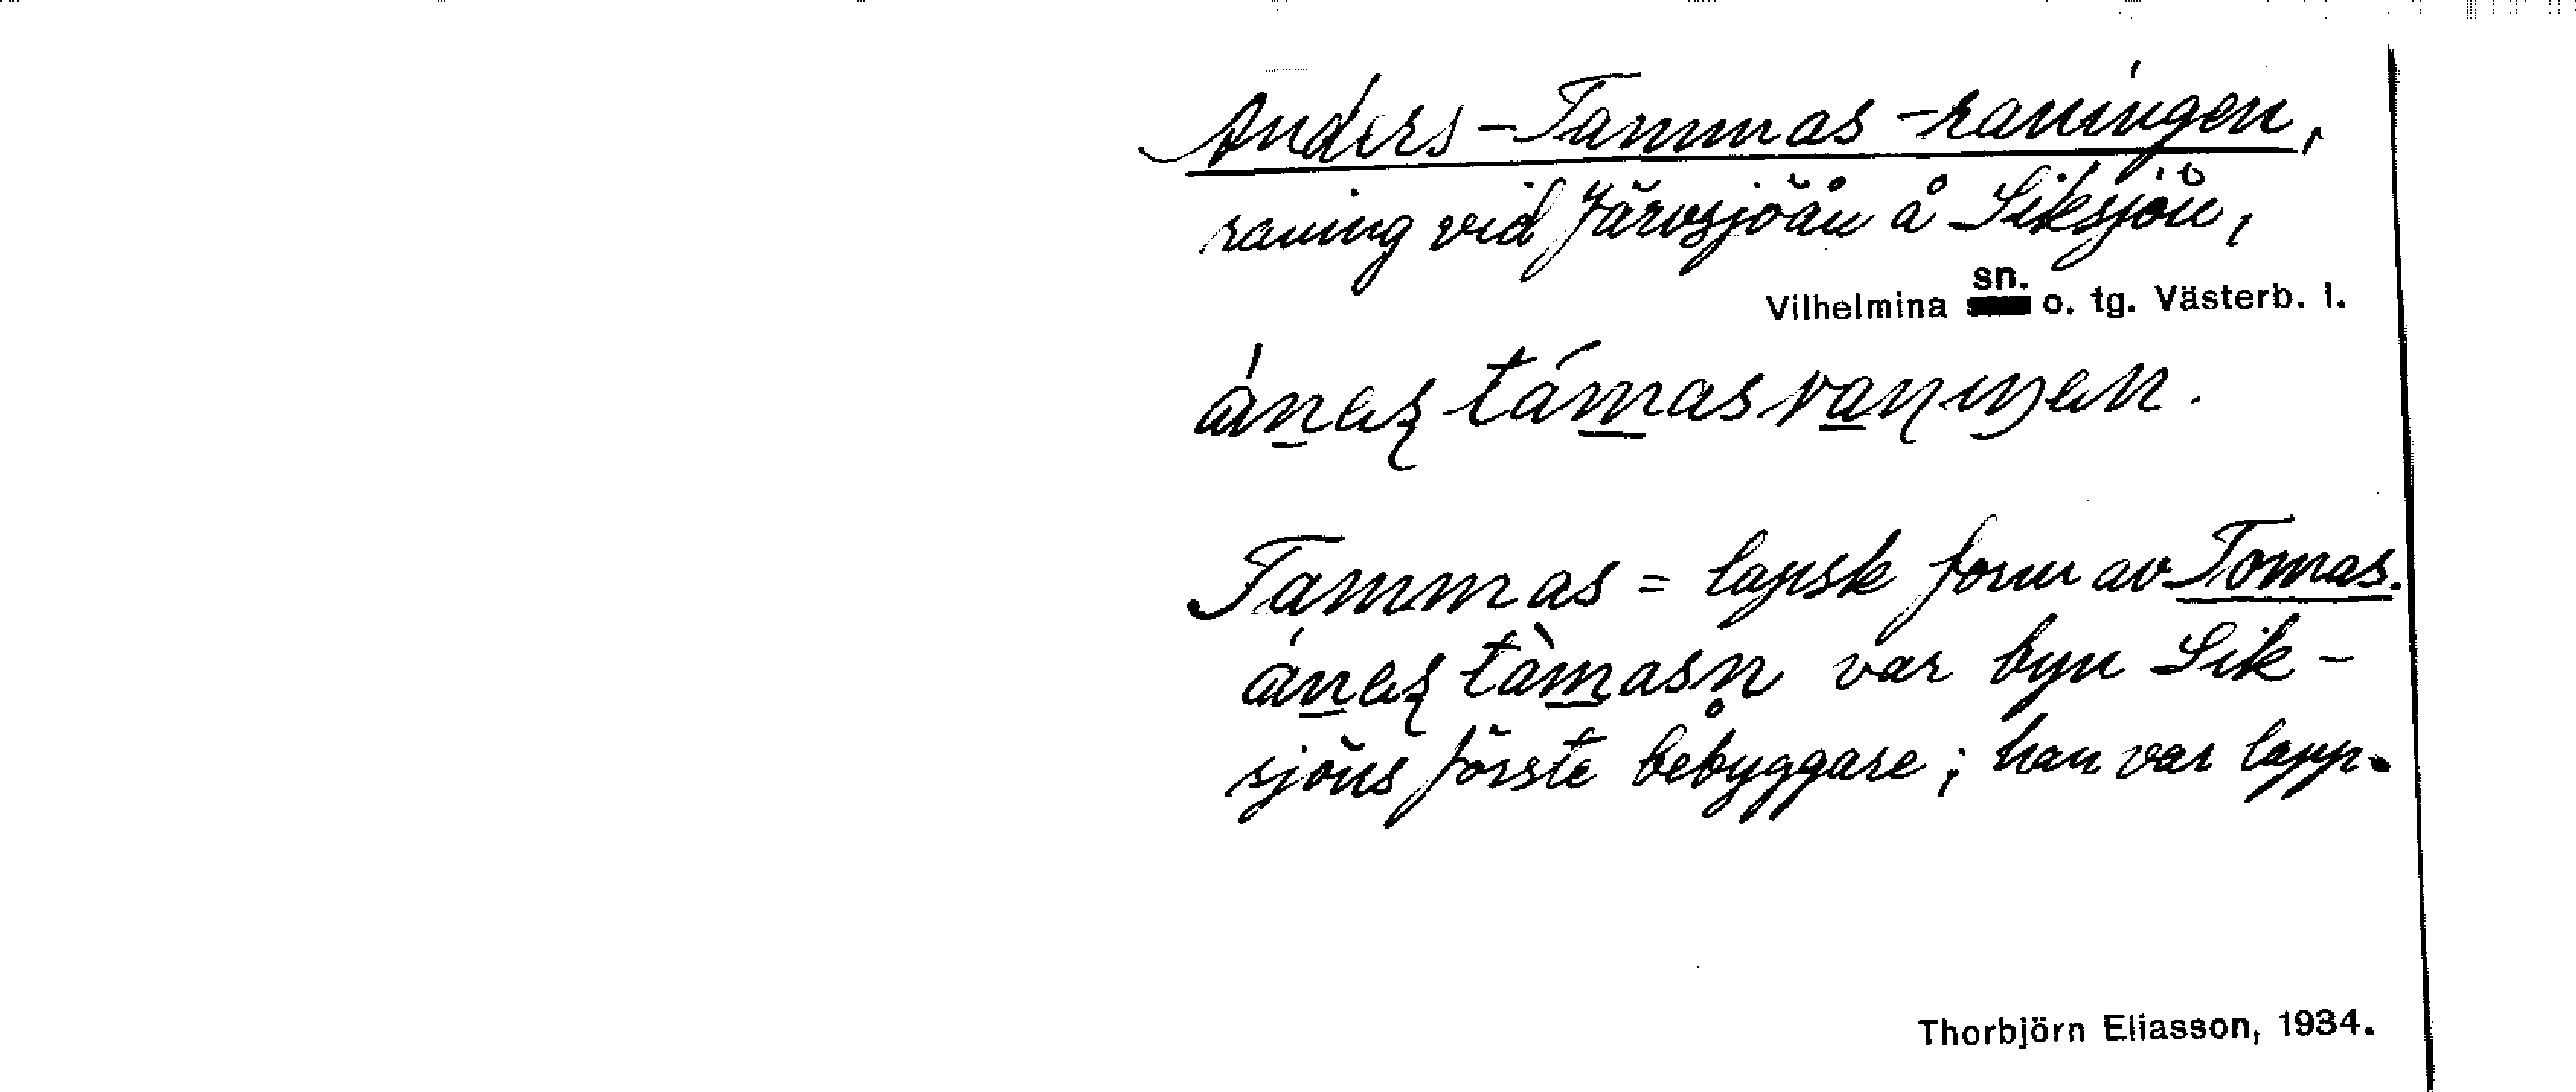 Anders-Tammas-raningen,
raning vid Järvsjöån å Siksjön,
Vilhelmina sn. o. tg. Västerb. l.
Tammas = lapsk form av Tomas.
var byn Sik-
sjöns förste bebyggare; han var lapp.
Thorbjörn Eliasson, 1934.